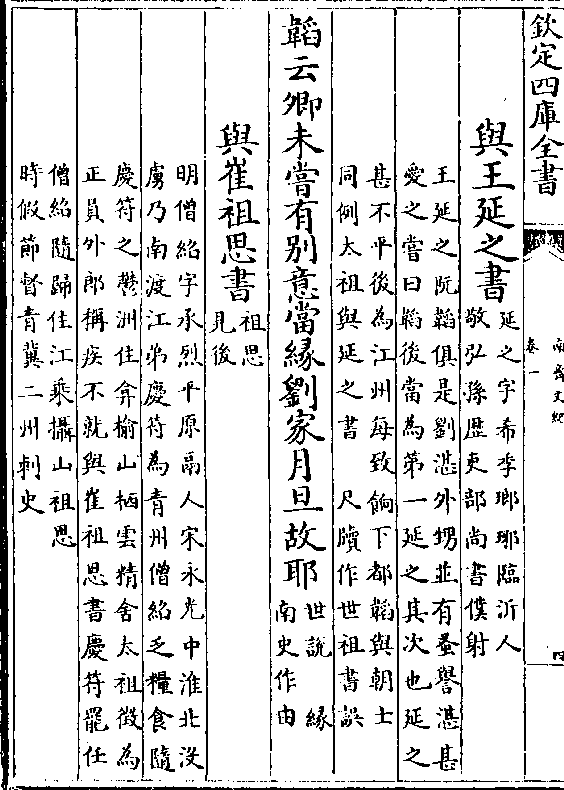 欽定四庫全書
南齊文紀
卷一
四
與王延之書
延之字希季瑯琊臨沂人
敬弘孫歴吏部尚書僕射
王延之阮韜俱是劉湛外甥並有蚤譽湛甚
愛之嘗曰韜後當為第一延之其次也延之
甚不平後為江州每致餉下都韜與朝士
同例太祖與延之書 尺牘作世祖書誤
韜云卿未嘗有别意當緣劉家月旦故耶
世説緣
南史作由
與崔祖思書
祖思
見後
明僧紹字承烈平原鬲人宋永光中淮北没
虜乃南渡江弟慶符為青州僧紹乏糧食隨
慶符之鬱洲住弇榆山栖雲精舍太祖徴為
正員外郎稱疾不就與崔祖思書慶符罷任
僧紹隨歸住江乗攝山祖思
時假節督青冀二州刺史